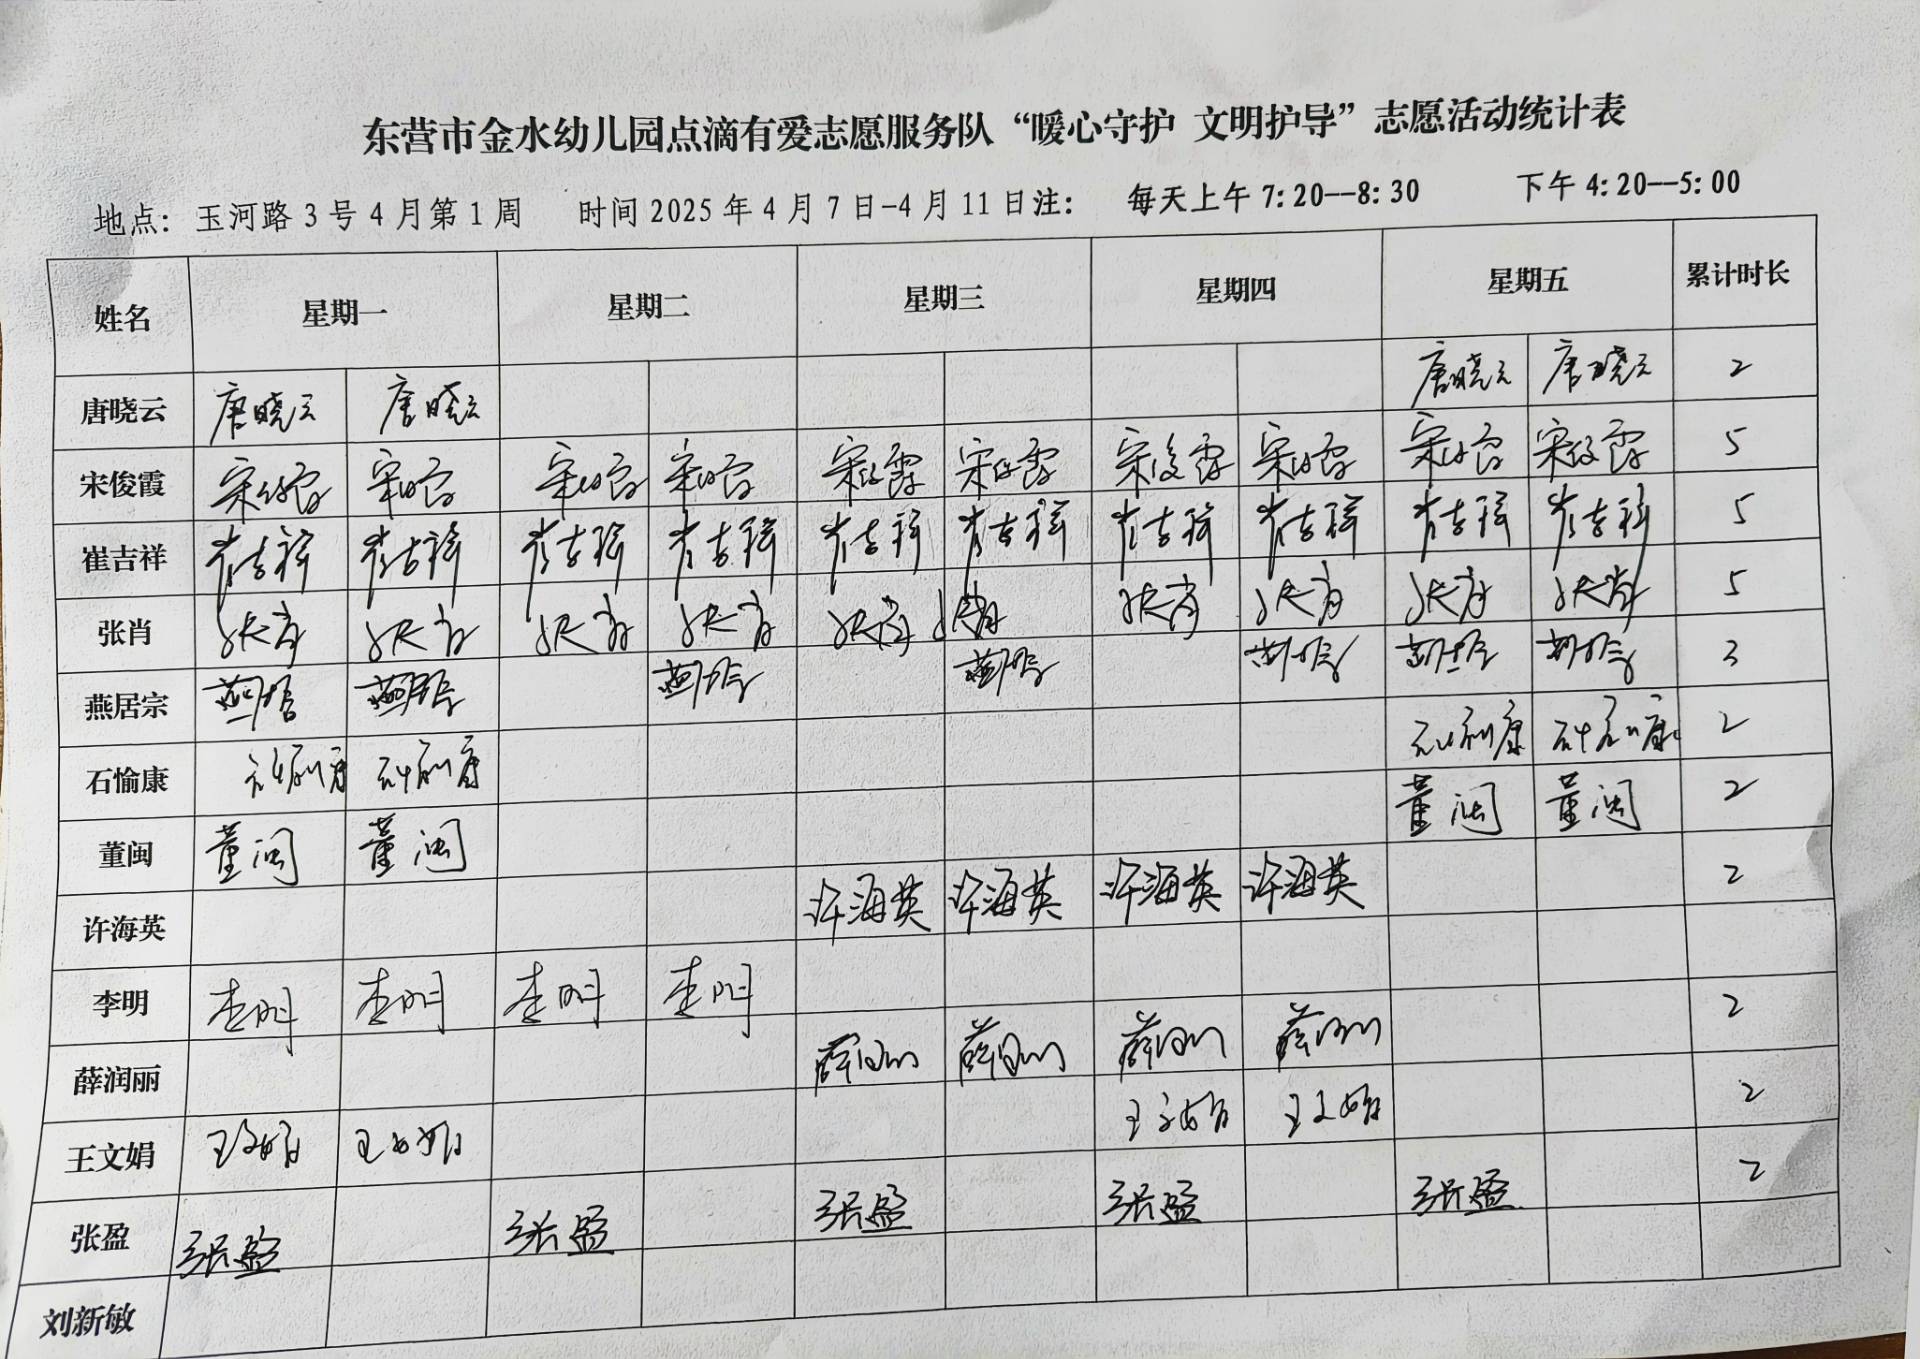 东营市金水幼儿园点滴有爱志愿服务队“暖心守护 文明护导”志愿活动统计表
地点：玉河路3号4月第1周 时间2025年4月7日-4月11日注： 每天上午7:20--8:30 下午4:20--5:00
姓名 星期一 星期二 星期三 星期四 星期五 累计时长
唐晓云 唐晓云 唐晓云 唐晓云 唐晓云 2
宋俊霞 宋俊霞 宋俊霞 宋俊霞 宋俊霞 宋俊霞 宋俊霞 宋俊霞 宋俊霞 宋俊霞 宋俊霞 5
崔吉祥 崔吉祥 崔吉祥 崔吉祥 崔吉祥 崔吉祥 崔吉祥 崔吉祥 崔吉祥 崔吉祥 崔吉祥 5
张肖 张肖 张肖 张肖 张肖 张肖 张肖 张肖 张肖 张肖 张肖 5
燕居宗 3
石愉康 2
董闽 董闽 董闽 董闽 董闽 2
许海英 许海英 许海英 许海英 许海英 2
李明 李明 李明 李明 李明
薛润丽 薛润丽 薛润丽 薛润丽 薛润丽 2
王文娟 王文娟 王文娟 王文娟 王文娟 2
张盈 张盈 张盈 张盈 张盈 张盈 2
刘新敏